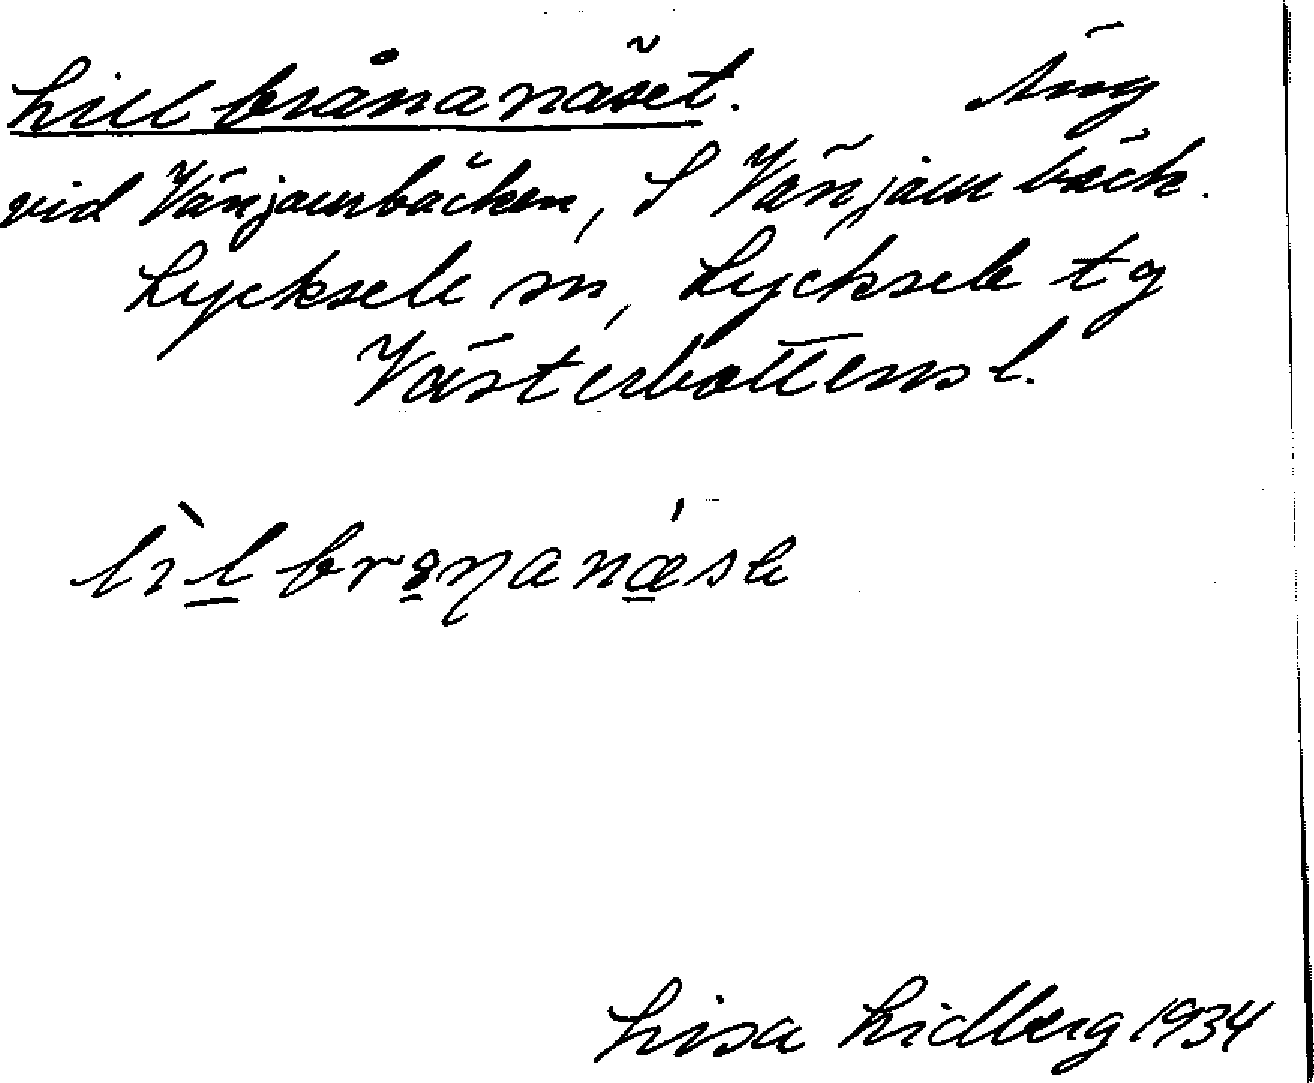 Lillbrånanäset. Äng
vid Vänjaurbäcken, S Vänjaurbäck.
Lycksele sn, Lycksele tg
Västerbottens l.
lìl brånanǽsɛ
Lisa Lidberg 1934